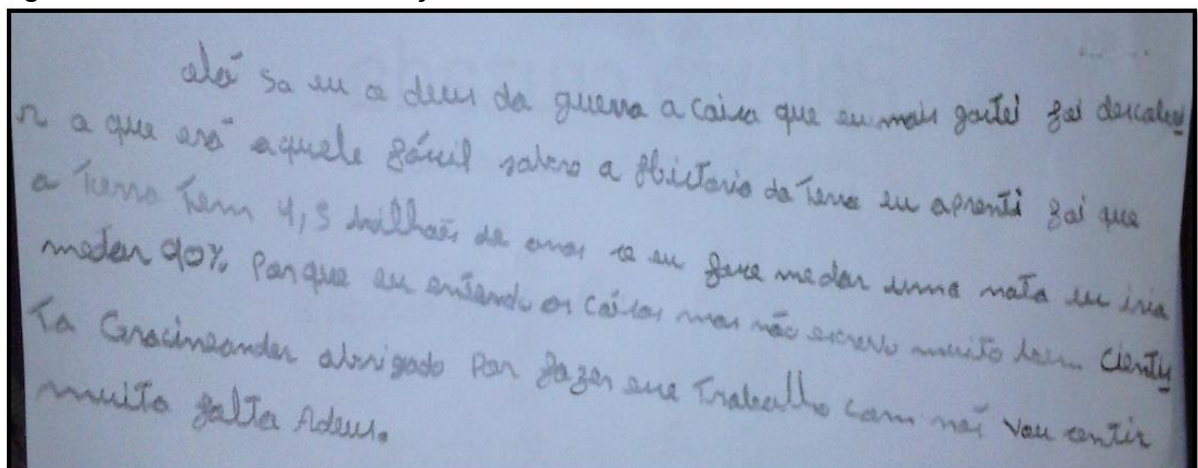 olá sa eu o deus da guerra a caisa que eu mais gostei foi descobri
r a que era aquele fócil sobre a Hictoria da Terra eu aprenti foi que
a Terra Tem 4,5 bilhões de anos se eu foce me dar uma nota eu iria
me dar 90% Porque eu entendo as caisas mas não escrevo muito bem. Cienty
ta obrigado Por fazer ece Trabalho com nós vou centir
muito falta Adeus.